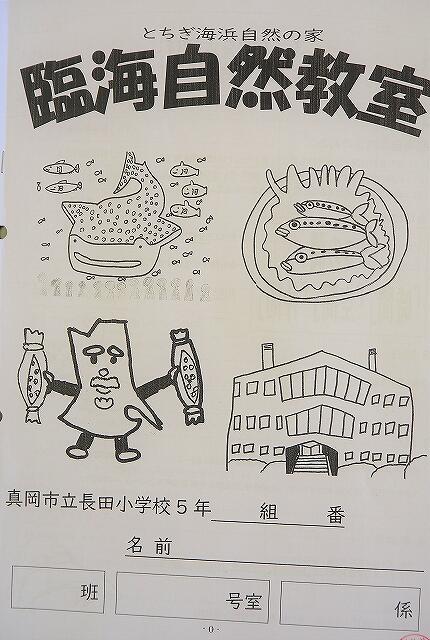 とちぎ海浜自然の家
臨海自然教室
真岡市立長田小学校5年 組 番
名前
班 号室 係
- 0 -